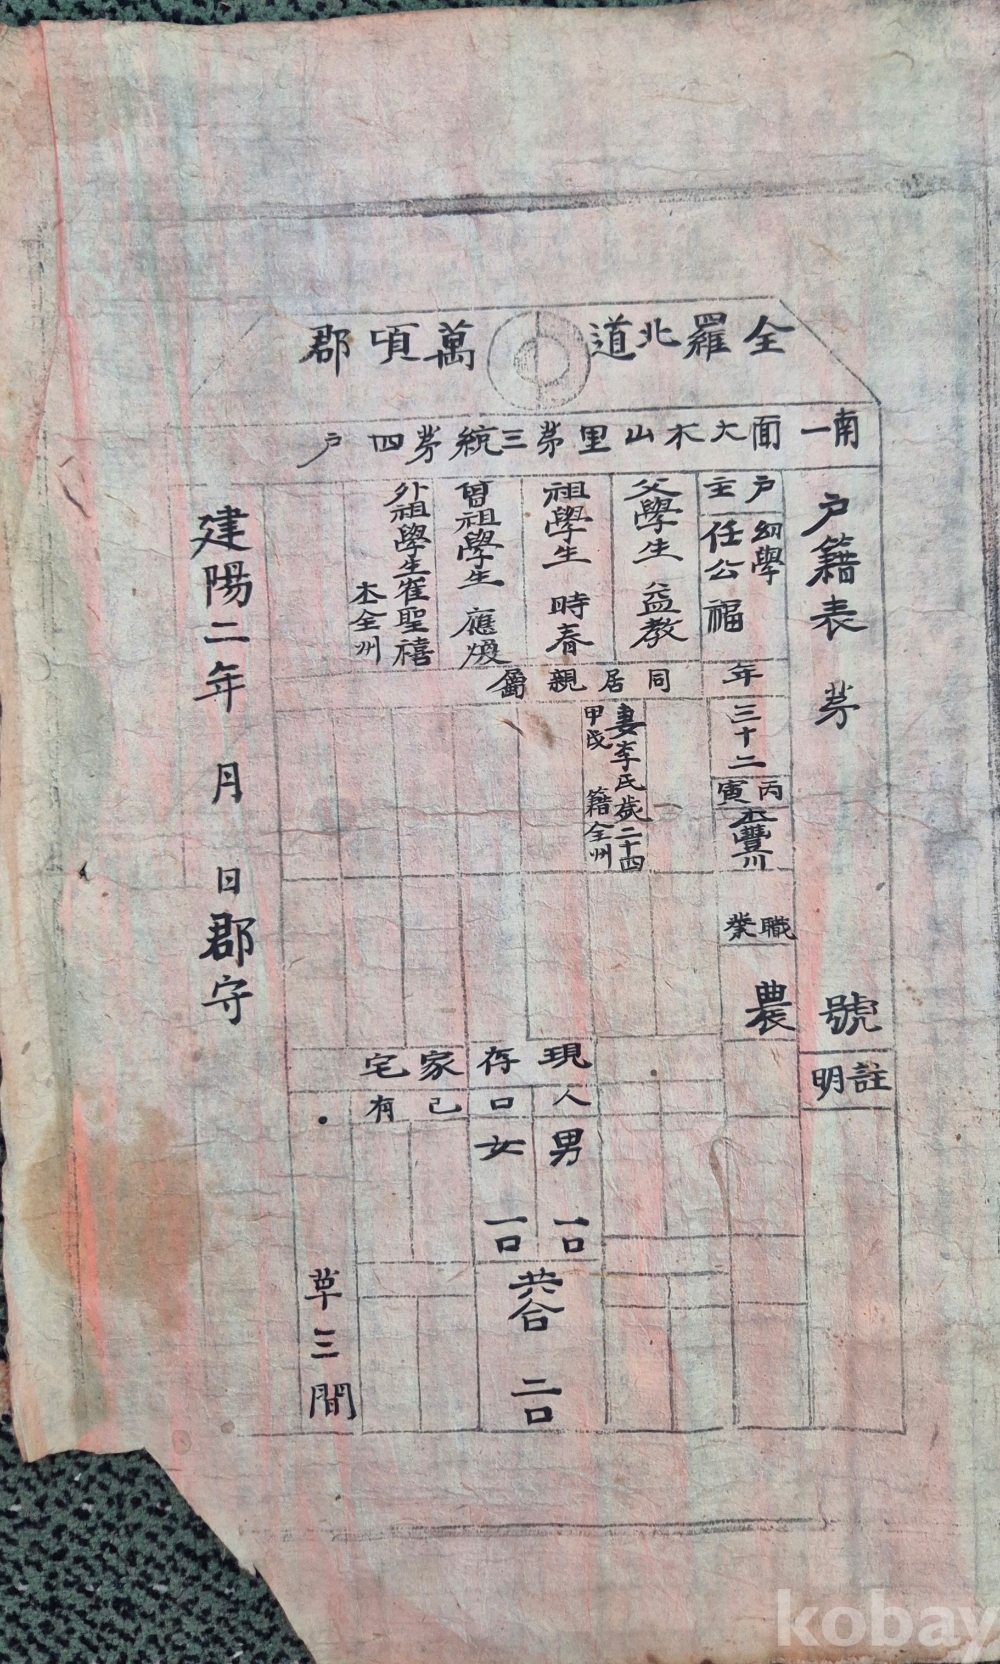 全羅北道 萬頃郡
南一面大木山里第三統第四戶
戶籍表 第 號
註明
戶主
幼學
任公福
年
三十二
丙寅
本豐川
職業
農
父學生 益教
祖學生 時春
曾祖學生 應煥
外祖學生崔聖禧
本全州
同居親屬
妻李氏歲二十四
甲戌 籍全州
現存
人口
男 一口
女 一口
共合 二口
家宅
己有
草三間
建陽二年 月 日郡守
kobay